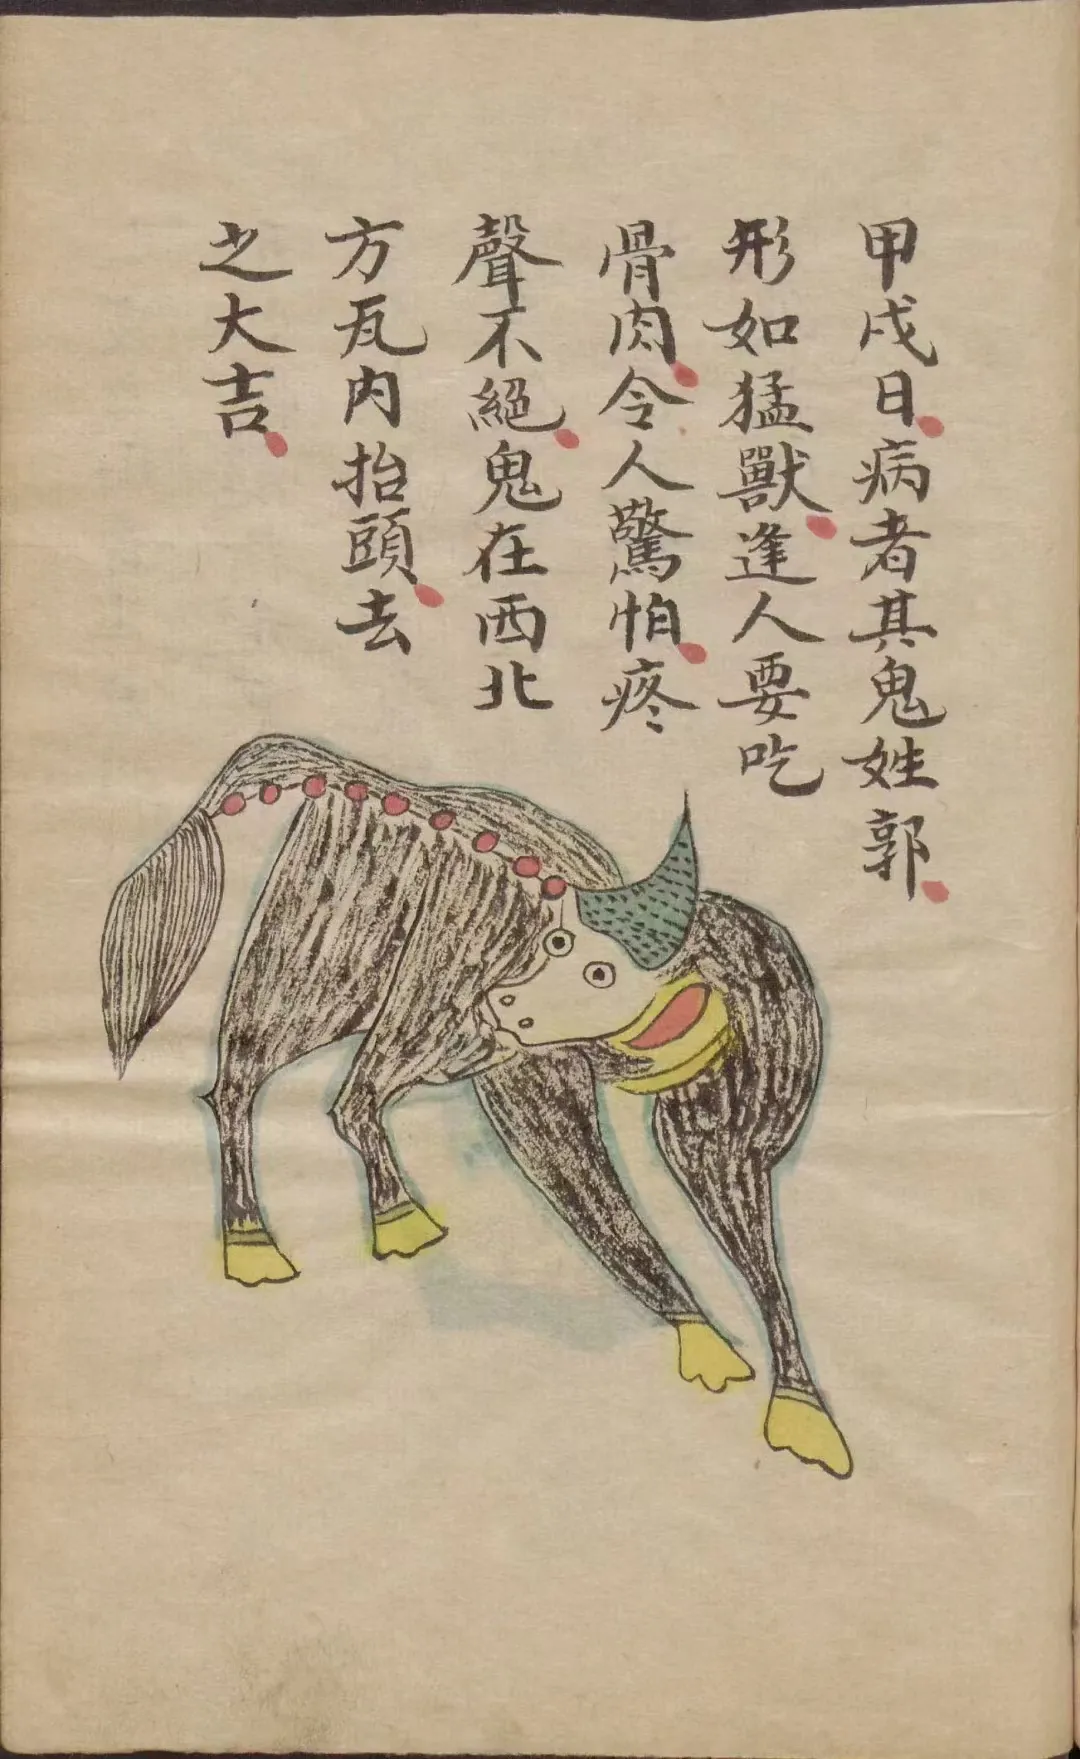 甲戌日病者其鬼姓郭
形如猛獸逢人要吃
骨肉令人驚怕疼
聲不絕鬼在西北
方瓦內抬頭去
之大吉